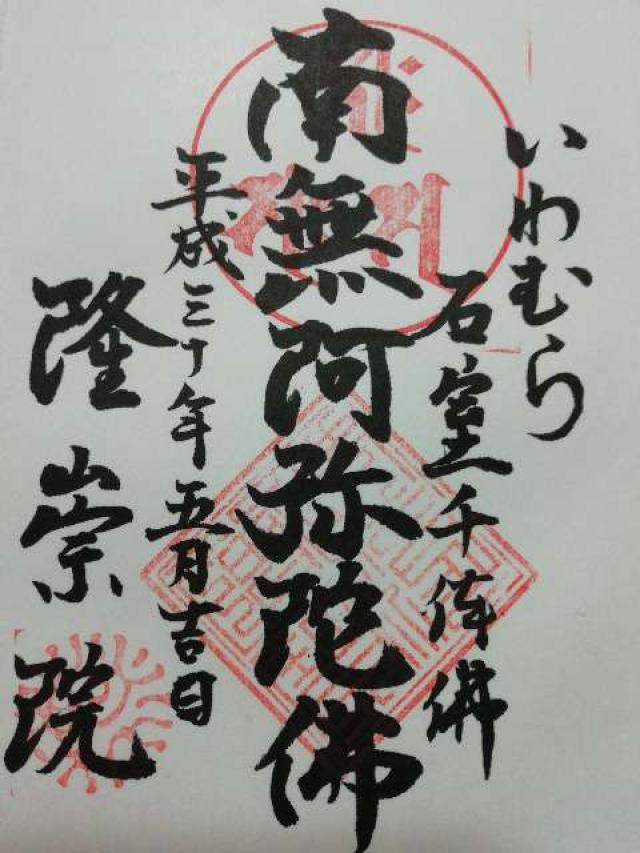 いわむら
石室千体佛
南無阿弥陀佛
平成三十年五月吉日
隆崇院